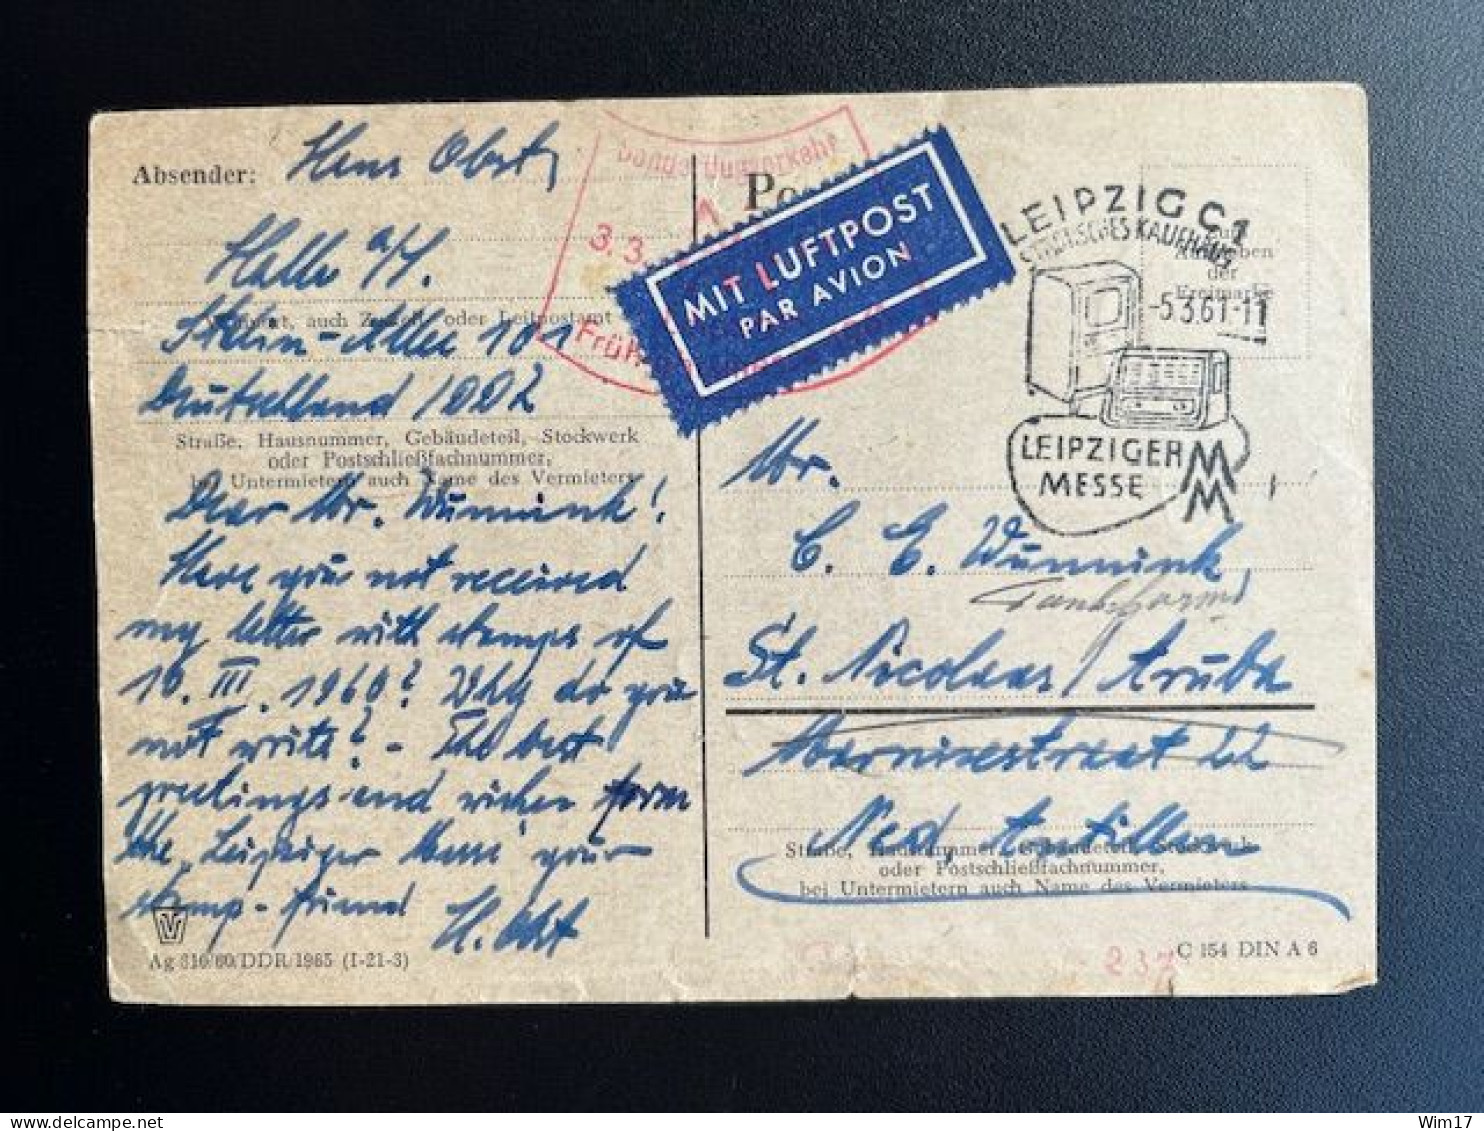 Absender: Hans Obst,
Halle a/S.
auch oder Leitpostamt
Allee 101
Deutschland / DDR
Straße, Hausnummer, Gebäudeteil, Stockwerk
oder Postschließfachnummer,
bei Untermietern auch Name des Vermieters
Dear Mr. Wunnink!
Have you not received
my letter with stamps of
10. III. 1960? Why do you
not write? - The best
greetings and wishes form
the "Leipziger Messe" your
stamp-friend H. Obst
Ag 310/60/DDR/1985 (I-21-3)
3. 3.
Früh
MIT LUFTPOST
PAR AVION
LEIPZIG C1
STÄDTISCHES KAUFHAUS
-5.3.61-11
LEIPZIGER
MESSE MM
der
Freimarke
Mr.
C. E. Wunnink,
St. Nicolaas / Aruba
22
Ned. Antillen
Straße, Hausnummer, Gebäudeteil, Stockwerk
oder Postschließfachnummer,
bei Untermietern auch Name des Vermieters
237
C 154 DIN A 6
Wim17